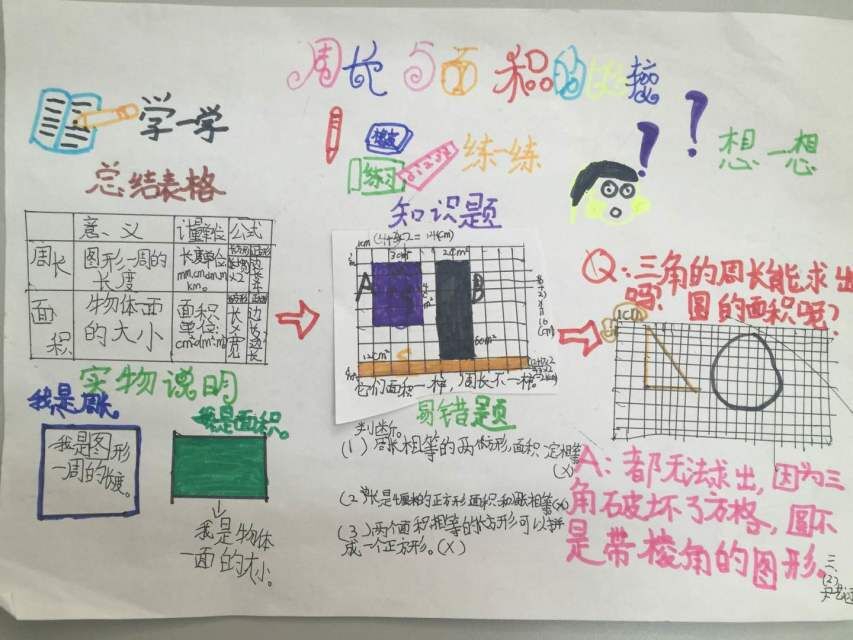 周长与面积的比较
学一学
总结表格
意义 计量单位 公式
周长 图形一周的长度 长度单位
km。
面积 物体面的大小 面积单位:
长×宽 边长×边长
实物说明
我是周长。
我是图形
一周的长度。
我是面积。
我是物体
一面的大小。
练习
练一练
知识题
1cm
(4+3)×2=14(cm)
3cm
A
B
12cm²
它们面积一样,周长不一样。
易错题
判断。
(1)周长相等的两个长方形,面积一定相等
(X)
(2)
的正方形面积和周长相等(X)
(3)两个面积相等的长方形可以拼
成一个正方形。(X)
想一想
Q:三角的周长能求出
吗?圆的面积呢?
A:都无法求出,因为三
角破坏了方格,圆不
是带棱角的图形。
三、
(2)